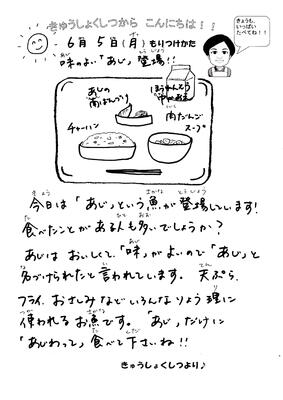 きゅうしょくしつから こんにちは！！
きょうも、
いっぱい
たべてね！！
6月 5日(月) もりつけかた
味のよい「あじ」登場!!
あじの
ほうれんそう
チャーハン
肉だんご
スープ
今日は「あじ」という魚が登場しています!
食べたことがある人も多いでしょうか?
あじは おいしくて、「味」がよいので「あじ」と
名づけられたと言われています。天ぷら、
フライ、おさしみなどいろんなりょう理に
使われるお魚です。「あじ」だけに
「あじわって」食べて下さいね!!
きゅうしょくしつより♪